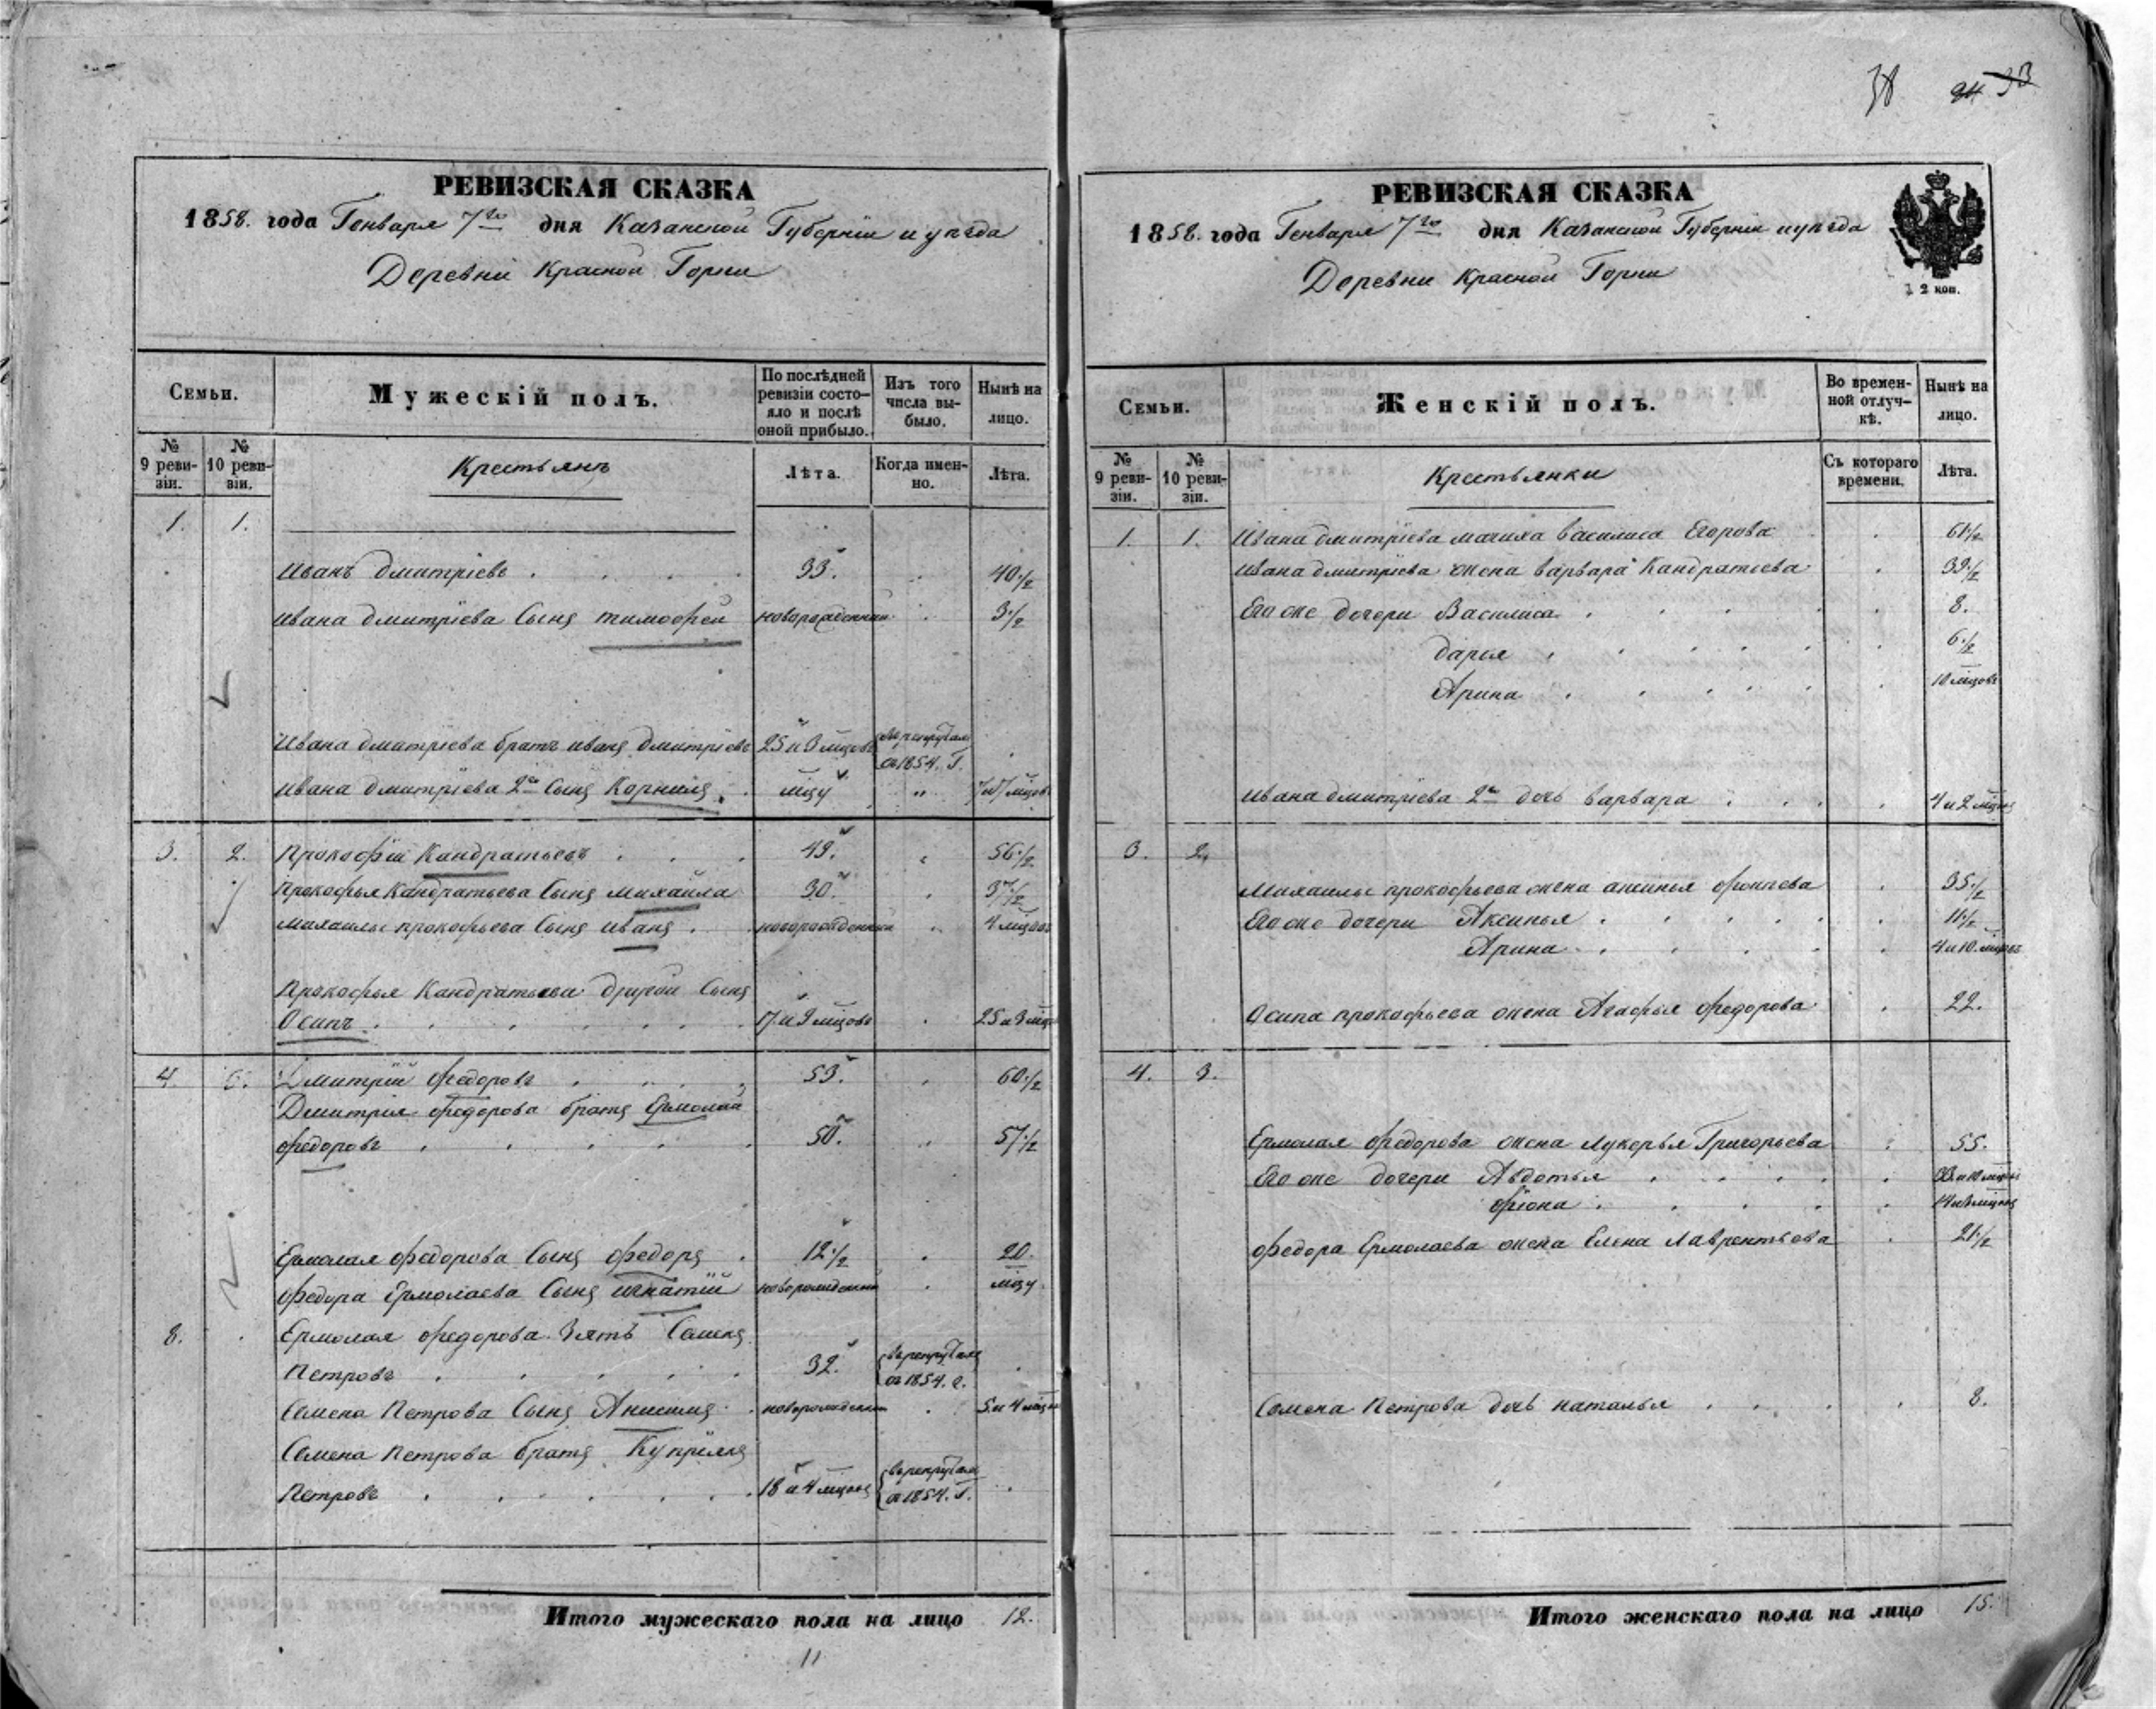 38 24 33
РЕВИЗСКАЯ СКАЗКА
1858. года Генваря 7го дня Казанской Губернiи и уѣзда
Деревни Красной Горки
Семьи.
Мужескiй полъ.
По послѣдней ревизiи состо-
яло и послѣ
оной прибыло.
Изъ того
числа вы-
было.
Нынѣ на
лицо.
№
9 реви-
зiи.
№
10 реви-
зiи.
Крестьянъ
Лѣта.
Когда имен-
но.
Лѣта.
1. 1.
Иванъ Дмитрiевъ 33. 40½
Ивана Дмитрiева Сынъ тимофей новорожденный 3½
Ивана Дмитрiева братъ иванъ Дмитрiевъ 25 и 3 мцовъ въ рекрутахъ
съ 1854. Г.
Ивана Дмитрiева 2го Сынъ Корнилъ мцу 7 и 7 мцовъ
3. 2. Прокофiй Кандратьевъ 49. 56½
Прокофья Кандратьева Сынъ михайла 30. 37½
Михаилы прокофьева Сынъ иванъ новорожденный 4 мцовъ
Прокофья Кандратьева другой Сынъ
Осипъ 17 и 9 мцовъ 25 и 3 мцовъ
4. Дмитрiй Федоровъ 53. 60½
Дмитрiя федорова братъ Ермолай
федоровъ 50. 57½
Ермолая федорова Сынъ федоръ 12½ 20.
федора Ермолаева Сынъ игнатiй новорожденный мцу
8. Ермолая федорова Зять Семенъ
Петровъ 32. въ рекрутахъ
съ 1854. г.
Семена Петрова Сынъ Анисимъ новорожденный 5 и 4 мцовъ
Семена Петрова братъ Купрiянъ
Петровъ 18 и 4 мцовъ въ рекрутахъ
съ 1854. Г.
Итого мужескаго пола на лицо 12.
11
РЕВИЗСКАЯ СКАЗКА
1858. года Генваря 7го дня Казанской Губернiи и уѣзда
Деревни Красной Горки
2 коп.
Семьи.
Женскiй полъ.
Во времен-
ной отлуч-
кѣ.
Нынѣ на
лицо.
№
9 реви-
зiи.
№
10 реви-
зiи.
Крестьянки
Съ котораго
времени.
Лѣта.
1. 1. Ивана Дмитрiева мачиха василиса Егорова 61½
Ивана Дмитрiева жена варвара Кандратьева 39½
Его же дочери Василиса 8.
дарья 6½
Арина 10 мцовъ
Ивана Дмитрiева 2го дочь варвара 4 и 2 мцовъ
3. 2.
Михаилы прокофьева жена аксинья 35½
Его же дочери Аксинья 11½
Арина 4 и 10 мцовъ
Осипа прокофьева жена Агафья федорова 22.
4. 3.
Ермолая федорова жена Лукерья Григорьева 55.
Его же дочери Авдотья 33 и 10 мцовъ
14 и мцовъ
федора Ермолаева жена Елена Лаврентьева 21½
Семена Петрова дочь наталья 8.
Итого женскаго пола на лицо 15.